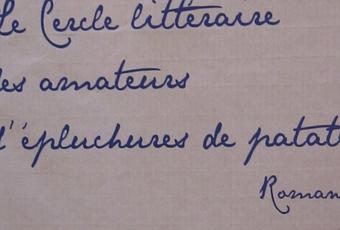 Le Cercle littéraire
des amateurs
d'épluchures de patat
Roman